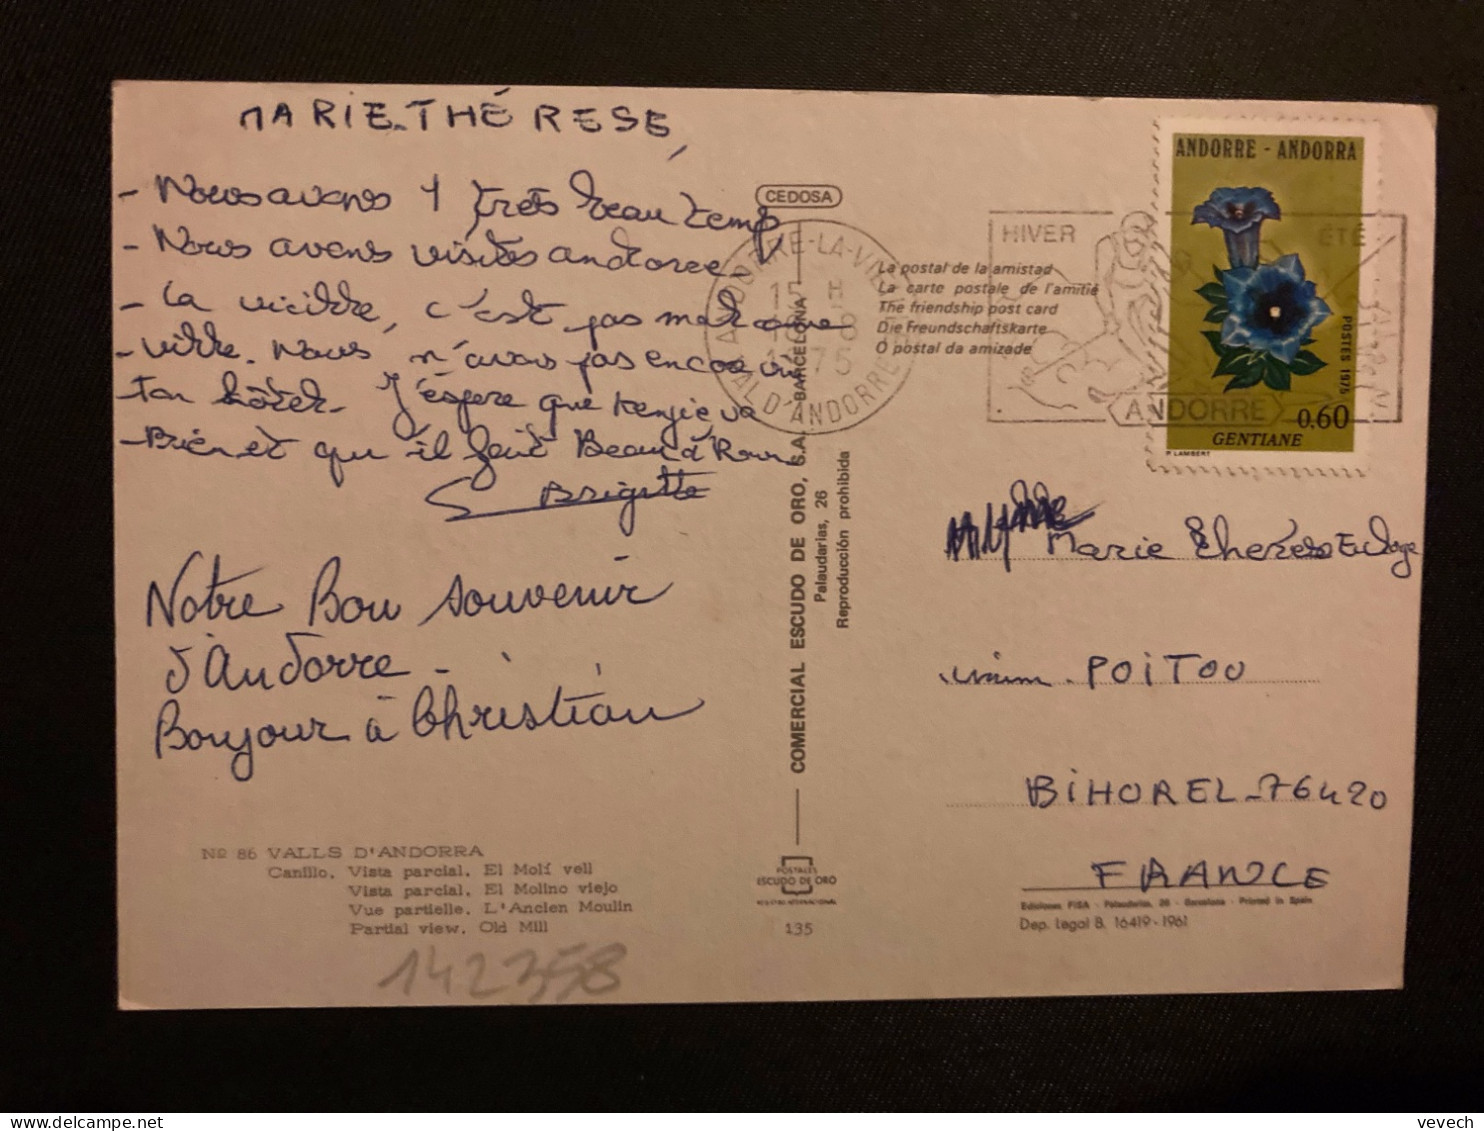 MARIE-THÉRESE,
- Nous avons 1 très beau temps
- Nous avons visités andorre.
- la vieille, c'est pas mal comme
- ville. Nous n'avons pas encore vu
ton hôtel. J'éspere que va
- Bien et qu'il fait Beau à Rouen
Brigitte
Notre Bon souvenir
d'Andorre -
Bonjour à Christian
Nº 86 VALLS D'ANDORRA
Canillo. Vista parcial. El Molí vell
Vista parcial. El Molino viejo
Vue partielle. L'Ancien Moulin
Partial view. Old Mill
142358
CEDOSA
COMERCIAL ESCUDO DE ORO, S.A. - BARCELONA
Palaudarias, 26
Reproducción prohibida
POSTALES
ESCUDO DE ORO
135
La postal de la amistad
La carte postale de l'amitié
The friendship post card
Die Freundschaftskarte
O postal da amizade
ANDORRE-LA-VIEILLE
VAL D'ANDORRE
HIVER
ÉTÉ
ANDORRE
ANDORRE - ANDORRA
POSTES 1975
0,60
GENTIANE
P. LAMBERT
Marie
POITOU
BIHOREL-76420
FRANCE
Ediciones FISA - Palaudarias, 26 - Barcelona - Printed in Spain
Dep. Legal B. 16419-1961